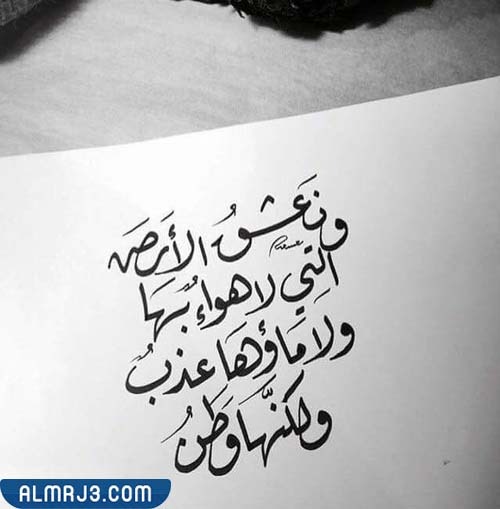 ونَعشقُ الأَرضَ
التِي لا هواءٌ بهَا
ولا مَاؤهَا عذبٌ
ولكنَّها وَطنُ
ALMRJ3.COM